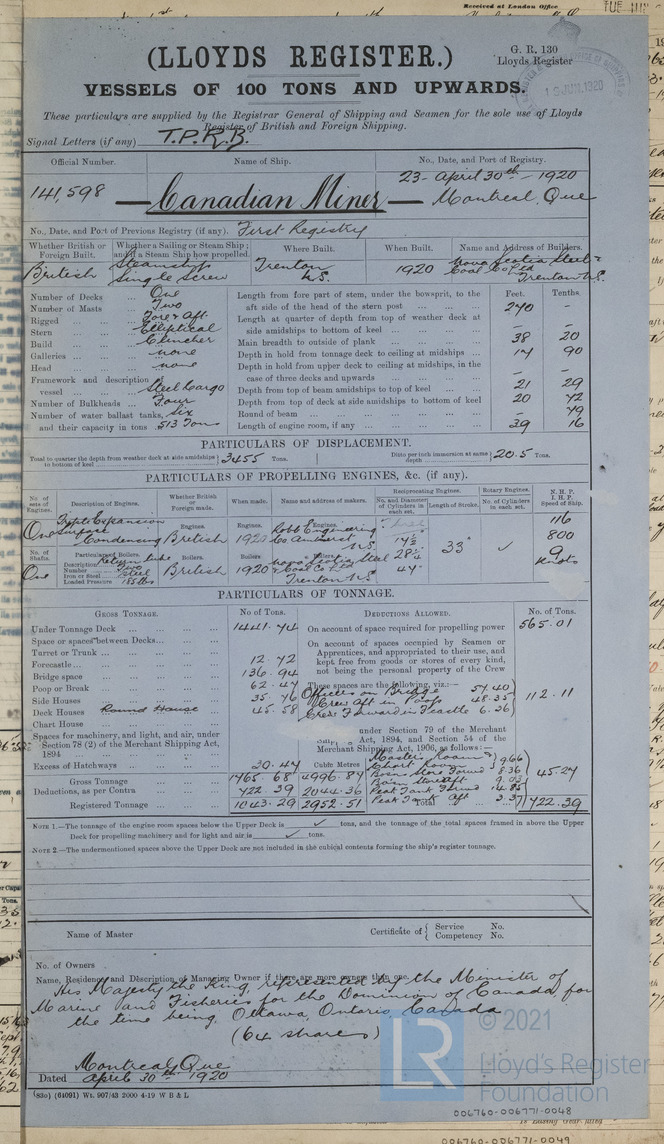 Received at London Office
(LLOYDS REGISTER.)
G. R. 130
Lloyds Register
VESSELS OF 100 TONS AND UPWARDS.
19 JUN. 1920
These particulars are supplied by the Registrar General of Shipping and Seamen for the sole use of Lloyds
Register of British and Foreign Shipping.
Signal Letters (if any) T.P.K.B.
Official Number. Name of Ship. No., Date, and Port of Registry.
141,598 — Canadian Miner — 23 - April 30th - 1920
Montreal, Que
No., Date, and Port of Previous Registry (if any). First Registry
Whether British or Foreign Built. Whether a Sailing or Steam Ship; and if a Steam Ship how propelled. Where Built. When Built. Name and Address of Builders.
British Steamship Single Screw Trenton N.S. 1920 Nova Scotia Steel & Coal Co Ltd Trenton N.S.
Feet. Tenths.
Number of Decks One
Number of Masts Two
Rigged Fore & Aft
Stern Elliptical
Build Clincher
Galleries none
Head none
Framework and description of vessel Steel Cargo
Number of Bulkheads Four
Number of water ballast tanks, six
and their capacity in tons 513 Tons
Length from fore part of stem, under the bowsprit, to the
aft side of the head of the stern post 240 -
Length at quarter of depth from top of weather deck at
side amidships to bottom of keel - -
Main breadth to outside of plank 38 20
Depth in hold from tonnage deck to ceiling at midships 17 90
Depth in hold from upper deck to ceiling at midships, in the
case of three decks and upwards - -
Depth from top of beam amidships to top of keel 21 29
Depth from top of deck at side amidships to bottom of keel 20 72
Round of beam - 79
Length of engine room, if any 39 16
PARTICULARS OF DISPLACEMENT.
Total to quarter the depth from weather deck at side amidships to bottom of keel 3455 Tons. Ditto per inch immersion at same depth 20.5 Tons.
PARTICULARS OF PROPELLING ENGINES, &c. (if any).
No. of sets of Engines. Description of Engines. Whether British or Foreign made. When made. Name and address of makers. Reciprocating Engines. Rotary Engines. N.H.P. I.H.P. Speed of Ship.
No. and Diameter of Cylinders in each set. Length of Stroke. No. of Cylinders in each set.
One Triple Expansion Surface Condensing Engines. British Engines. 1920 Engines. Robb Engineering Co Amherst N.S. Three 17½ 28½ 47 33" ✓ 116
800
9 Knots
No. of Shafts. Particulars of Boilers. Boilers. Boilers. Boilers.
One Description Return tube British 1920 Nova Scotia Steel & Coal Co Ltd Trenton N.S.
Number Two
Iron or Steel Steel
Loaded Pressure 185 lbs
PARTICULARS OF TONNAGE.
GROSS TONNAGE. No. of Tons. DEDUCTIONS ALLOWED. No. of Tons.
Under Tonnage Deck 1441.74
Space or spaces between Decks
Turret or Trunk
Forecastle 12.72
Bridge space 136.94
Poop or Break 62.47
Side Houses 35.76
Deck Houses Round House 45.58
Chart House
Spaces for machinery, and light, and air, under
Section 78 (2) of the Merchant Shipping Act,
1894
Excess of Hatchways 30.47
Cubic Metres
Gross Tonnage 1765 68 4996.87
Deductions, as per Contra 722 39 2044.36
Registered Tonnage 1043.29 2952.51
On account of space required for propelling power 565.01
On account of spaces occupied by Seamen or
Apprentices, and appropriated to their use, and
kept free from goods or stores of every kind,
not being the personal property of the Crew
These spaces are the following, viz.:—
Officers on Bridge 57.40
Crew Aft in Poop 48.35
Crew Forward in Fcastle 6.36
112.11
under Section 79 of the Merchant
Act, 1894, and Section 54 of the
Merchant Shipping Act, 1906, as follows:—
Master Rooms 9.66
Chart Room 8.36
Bosn Store Forwd 9.03
Bosn Store Aft
Peak Tank Forwd 14.85
Peak Tank Aft 3.37
45.27
Total 722.39
NOTE 1.—The tonnage of the engine room spaces below the Upper Deck is ✓ tons, and the tonnage of the total spaces framed in above the Upper
Deck for propelling machinery and for light and air is ✓ tons.
NOTE 2.—The undermentioned spaces above the Upper Deck are not included in the cubical contents forming the ship's register tonnage.
Name of Master Certificate of { Service No.
Competency No.
No. of Owners
Name, Residence and Description of Managing Owner if there are more owners than one.
His Majesty the King, represented by the Minister of
Marine and Fisheries for the Dominion of Canada, for
the time being. Ottawa, Ontario, Canada
(64 shares)
Montreal, Que
Dated April 30th 1920
(830) (64091) Wt. 907/43 2000 4-19 W B & L
© 2021
LR
Lloyd's Register
Foundation
006760-006771-0048
006760-006771-0049